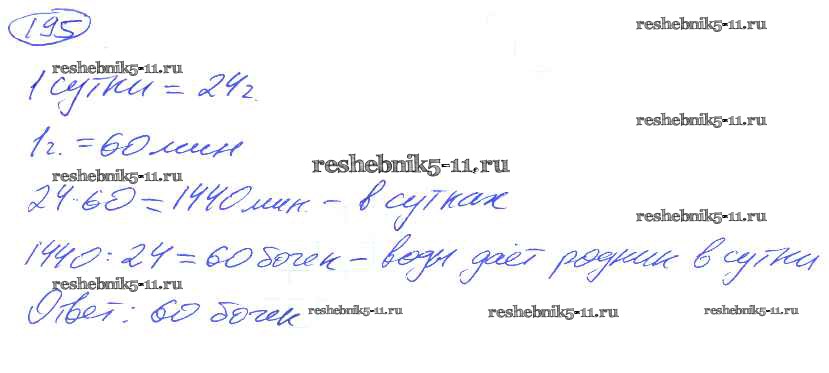 195
reshebnik5-11.ru
reshebnik5-11.ru
1 сутки = 24 г.
reshebnik5-11.ru
1 г. = 60 мин
reshebnik5-11.ru
reshebnik5-11.ru
24 · 60 = 1440 мин. – в сутках
reshebnik5-11.ru
1440 : 24 = 60 бочек – воды даёт родник в сутки
reshebnik5-11.ru
Ответ: 60 бочек
reshebnik5-11.ru
reshebnik5-11.ru
reshebnik5-11.ru